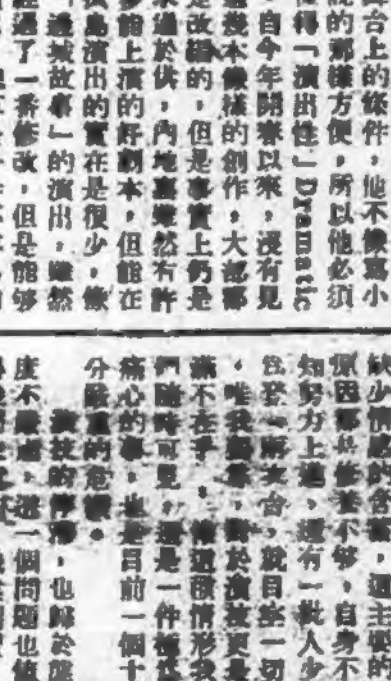 台上的條件，他不像寫小
說的那樣方便，所以他必須
得「演出性」Dramatic
自今年開春以來，沒有見
過幾本像樣的創作，大都都
是改編的，但是事實上仍是
求過於供，內地裏雖然有許
多能上演的好劇本，但能在
島演出的實在是很少，
「邊城故事」的演出，雖然
經過了一番修改，但是能夠
缺少情感的含蓄，這主要的
原因那是修養不够，自身不
知努力上進，還有一批人少
登一兩次台，就目空一切
，唯我獨尊，對於演技更是
滿不在乎，這種情形我
們隨時可見，這是一件極其
痛心的事，也是目前一個十
分嚴重的危機。
演技的停滯，也歸於
度不嚴肅，這一個問題也值